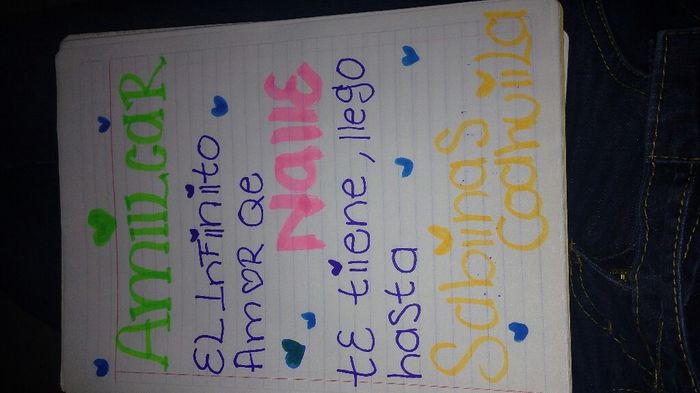 AmiiLcaR
EL InFiiniito
AmOR Qe
NallE
tE tiiene, llego
hasta
Sabiinas
Coahuiila